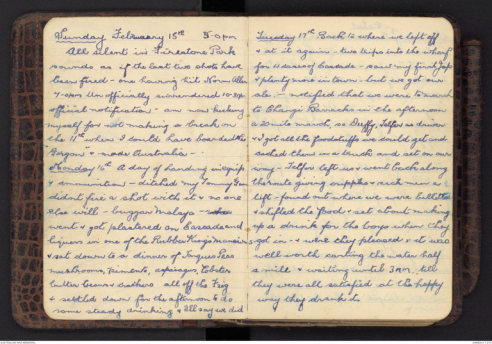 Sunday February 15th 5-0 pm
All silent in Firestone Park
sounds as if the last two shots have
been fired - one having hit Norm Allen
7-0pm Un officially surrendered 10-30p
official notification - am now kicking
myself for not making a break on
the 11th when I could have boarded the
Gorgon & made Australia -
Monday 16th A day of handing in equip
& ammunition - ditched my Tommy Gun
didnt fire a shot with it & no one
else will - bugger Malaya -
went & got plastered on Cascade and
liquers in one of the Rubber Kings Mansions
& sat down to a dinner of Tongues Peas
mushrooms, Pimento, asparagus, Lobster
butter beans & others all off the Frig
& settled down for the afternoon to do
some steady drinking & Ill say we did
Tuesday 17th Back to where we left off
& at it again - two trips into the wharf
for 11 doz of Cascade - saw my first Jap
& plenty more in town - but we got our
ale - notified that we were to march
to Changi Barracks in the afternoon
a 20 mile march, so Duffy, Telfer as driver
& I got all the foodstuffs we could get and
packed them in a truck and set on our
way - Telfer left us & went back along
the route giving supplies & sick men a
lift - found out where we were billetted
& shifted the food & set about making
up a drink for the boys when they
got in - & were they pleased & it was
well worth carrying the water half
a mile & waiting until 3 AM, till
they were all satisfied at the happy
way they drank it.